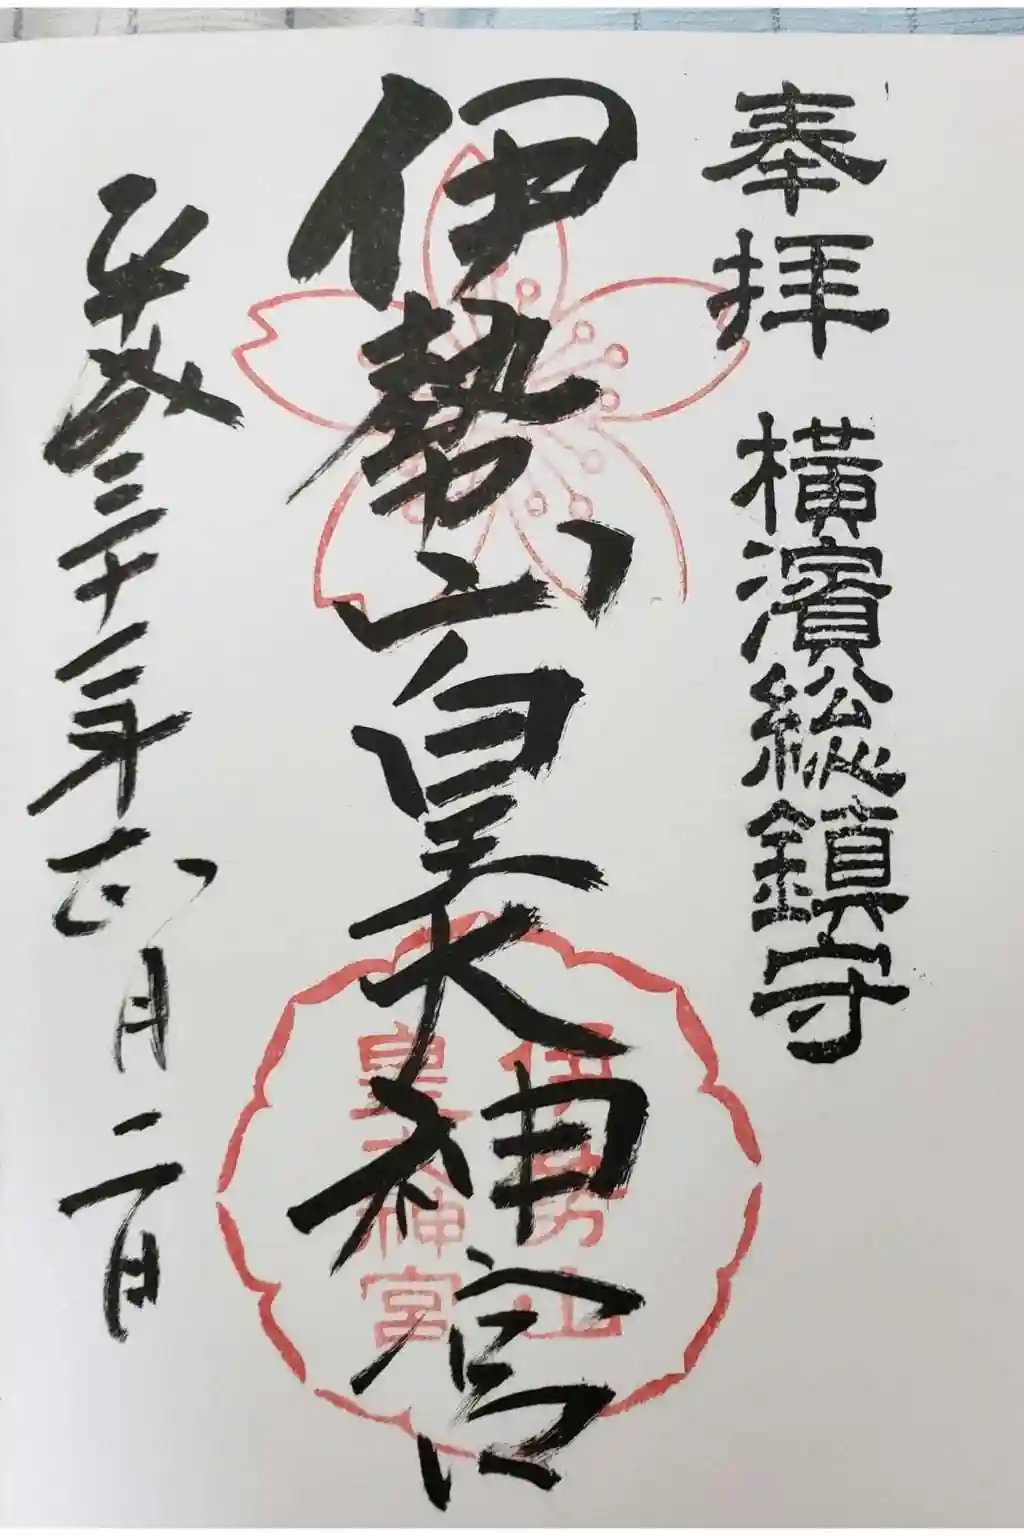 奉拝　横濱総鎮守
伊勢山皇大神宮
平成三十一年正月二日
伊勢山
皇大神宮